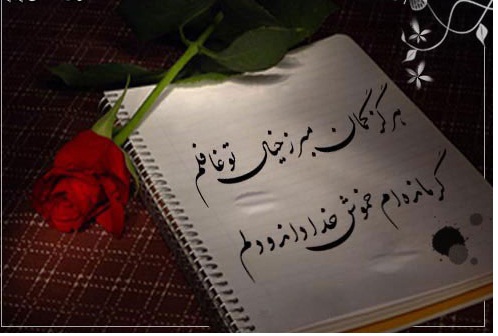 هرگز گمان مبر ز خیال تو غافلم
گر مانده‌ام خموش خدا داند و دلم